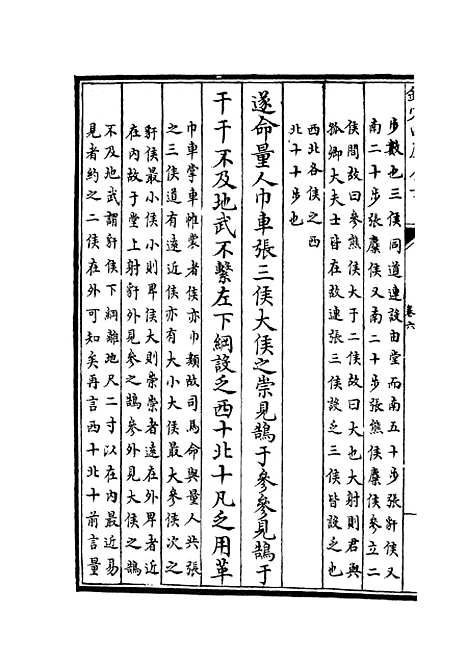 卷六
步數也三侯同道連設由堂而南五十步張豻侯又
南二十步張麋侯又南二十步張熊侯麋侯參立二
侯間故曰參熊侯大于二侯故曰大也大射則君與
孤卿大夫士皆在故連張三侯設乏三侯皆設乏也
西北各侯之西
北十十步也
遂命量人巾車張三侯大侯之崇見鵠于參參見鵠于
干干不及地武不繫左下綱設乏西十北十凡乏用革
巾車掌車帷裳者侯亦巾類故司馬命與量人共張
之三侯道有遠近侯亦有大小大侯最大參侯次之
豻侯最小侯小則卑侯大則崇崇者遠在外卑者近
在內故于堂上射豻外見參之鵠參外見大侯之鵠
不及地武謂豻侯下綱離地尺二寸以在內最近易
見者約之二侯在外可知矣再言西十北十前言量